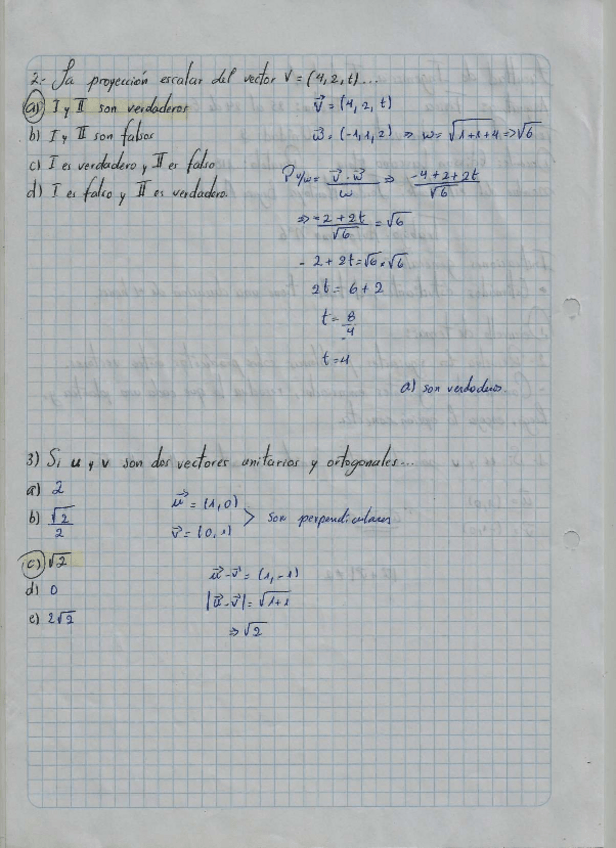 2.- La proyección escalar del vector V = (4, 2, t)...
a) I y II son verdaderos
b) I y II son falsos
c) I es verdadero y II es falso
d) I es falso y II es verdadero.
v⃗ = (4, 2, t)
w⃗ = (-1, 1, 2) ⇒ w = √1+1+4 ⇒ √6
P v/w = v⃗ · w⃗ / w ⇒ -4+2+2t / √6
⇒ -2+2t / √6 = √6
- 2 + 2t = √6 × √6
2t = 6 + 2
t = 8/4
t = 4
a) son verdaderos.
3) Si u y v son dos vectores unitarios y ortogonales...
a) 2
b) √2/2
c) √2
d) 0
e) 2√2
u⃗ = (1, 0)
v⃗ = (0, 1) > son perpendiculares
u⃗ - v⃗ = (1, -1)
|u⃗ - v⃗| = √1+1
⇒ √2